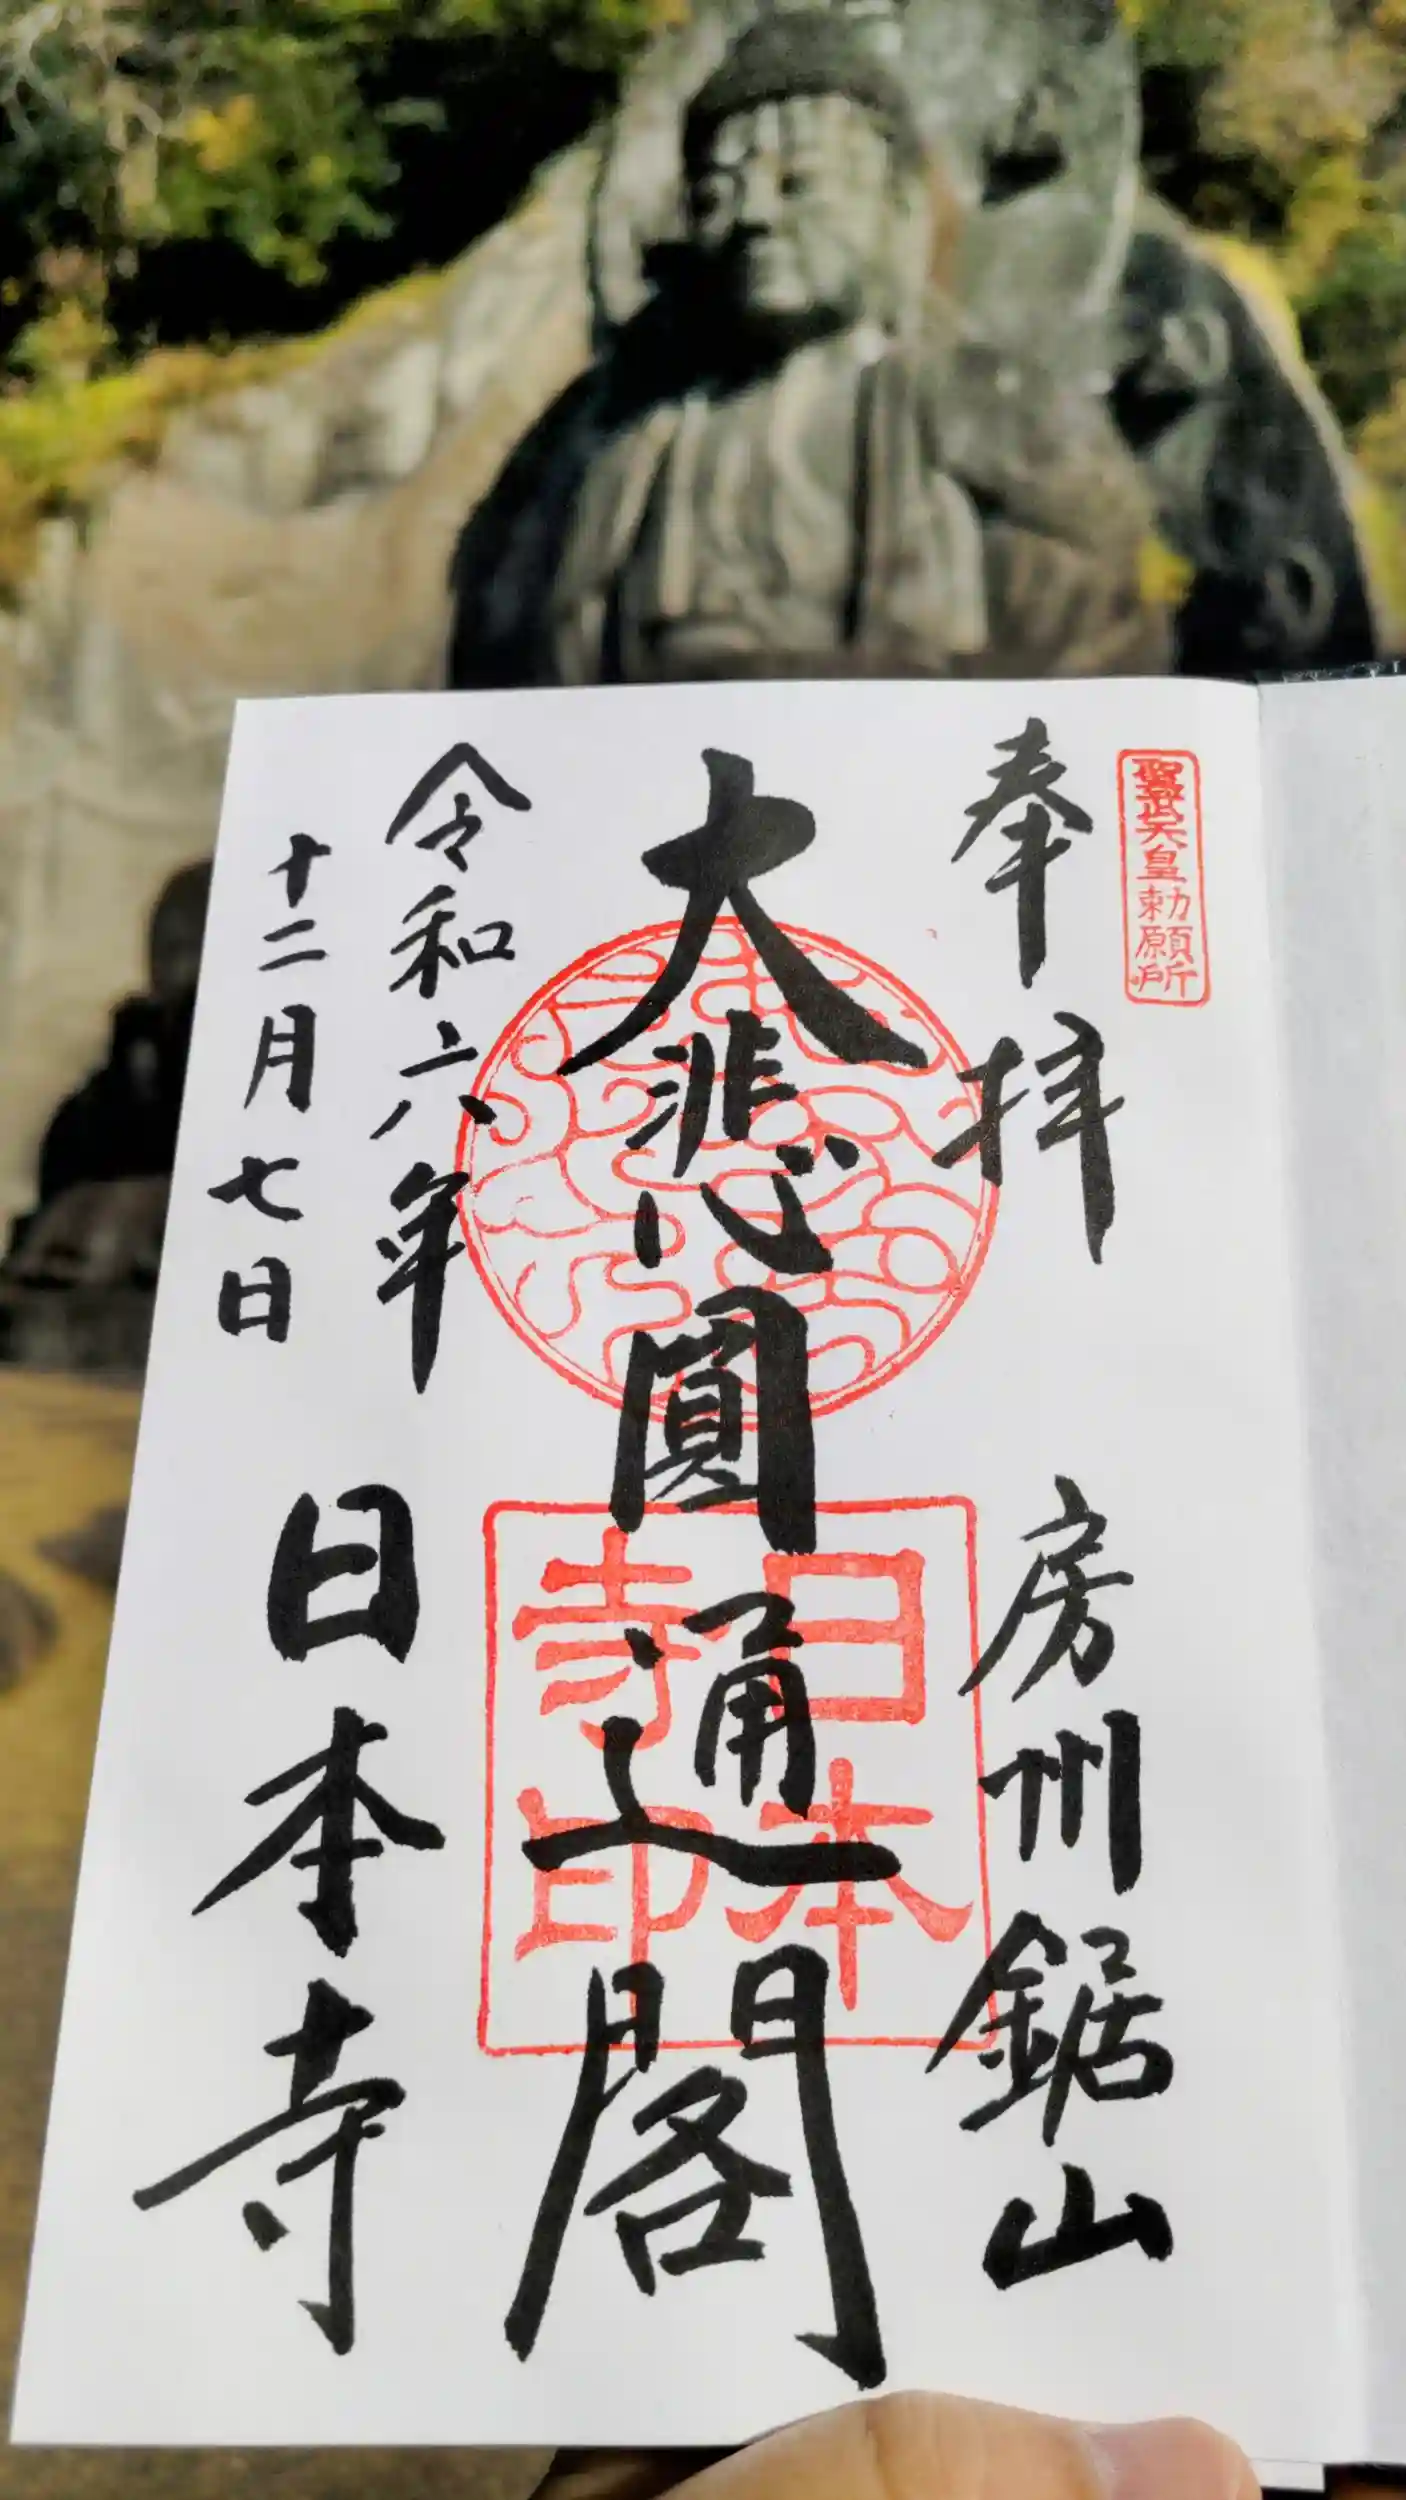 聖武天皇勅願所
奉拝
房州鋸山
大悲心圓通閣
日本寺印
令和六年
十二月七日
日本寺